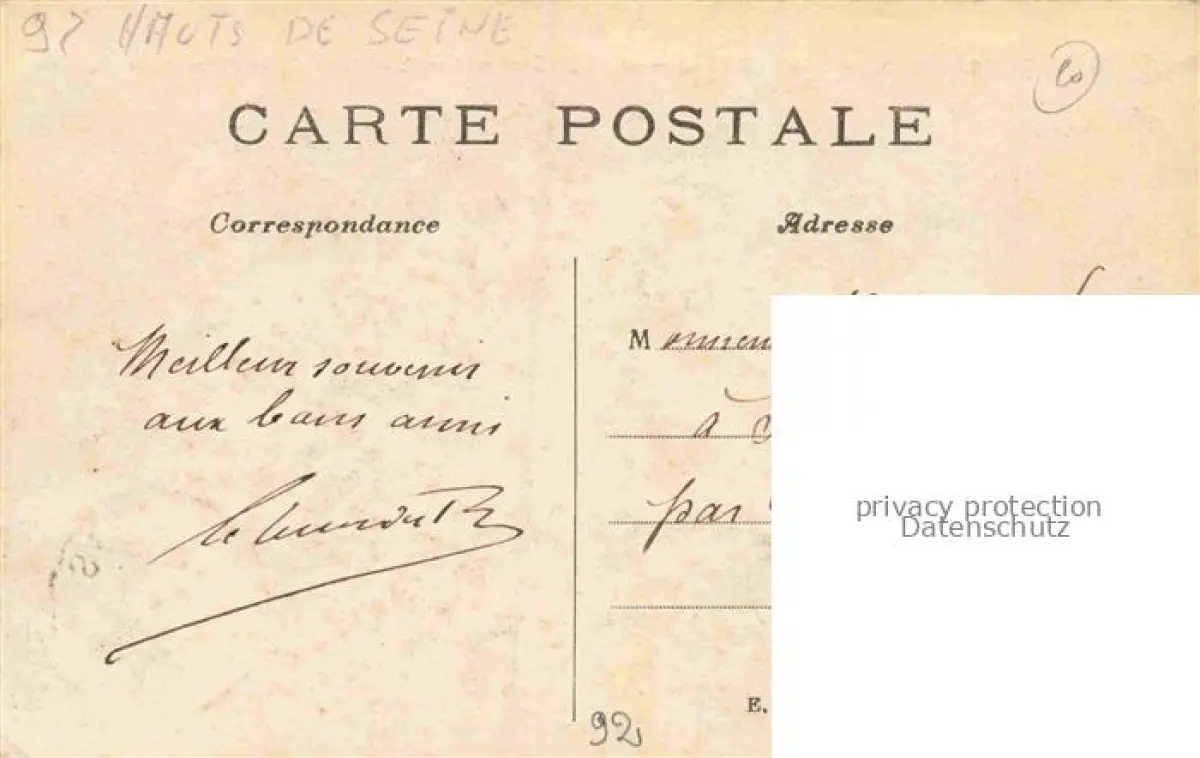 92 HAUTS DE SEINE
CARTE POSTALE
Correspondance
Adresse
Meilleur souvenir
aux bons amis
Monsieur
à
par
E.
92
privacy protection
Datenschutz